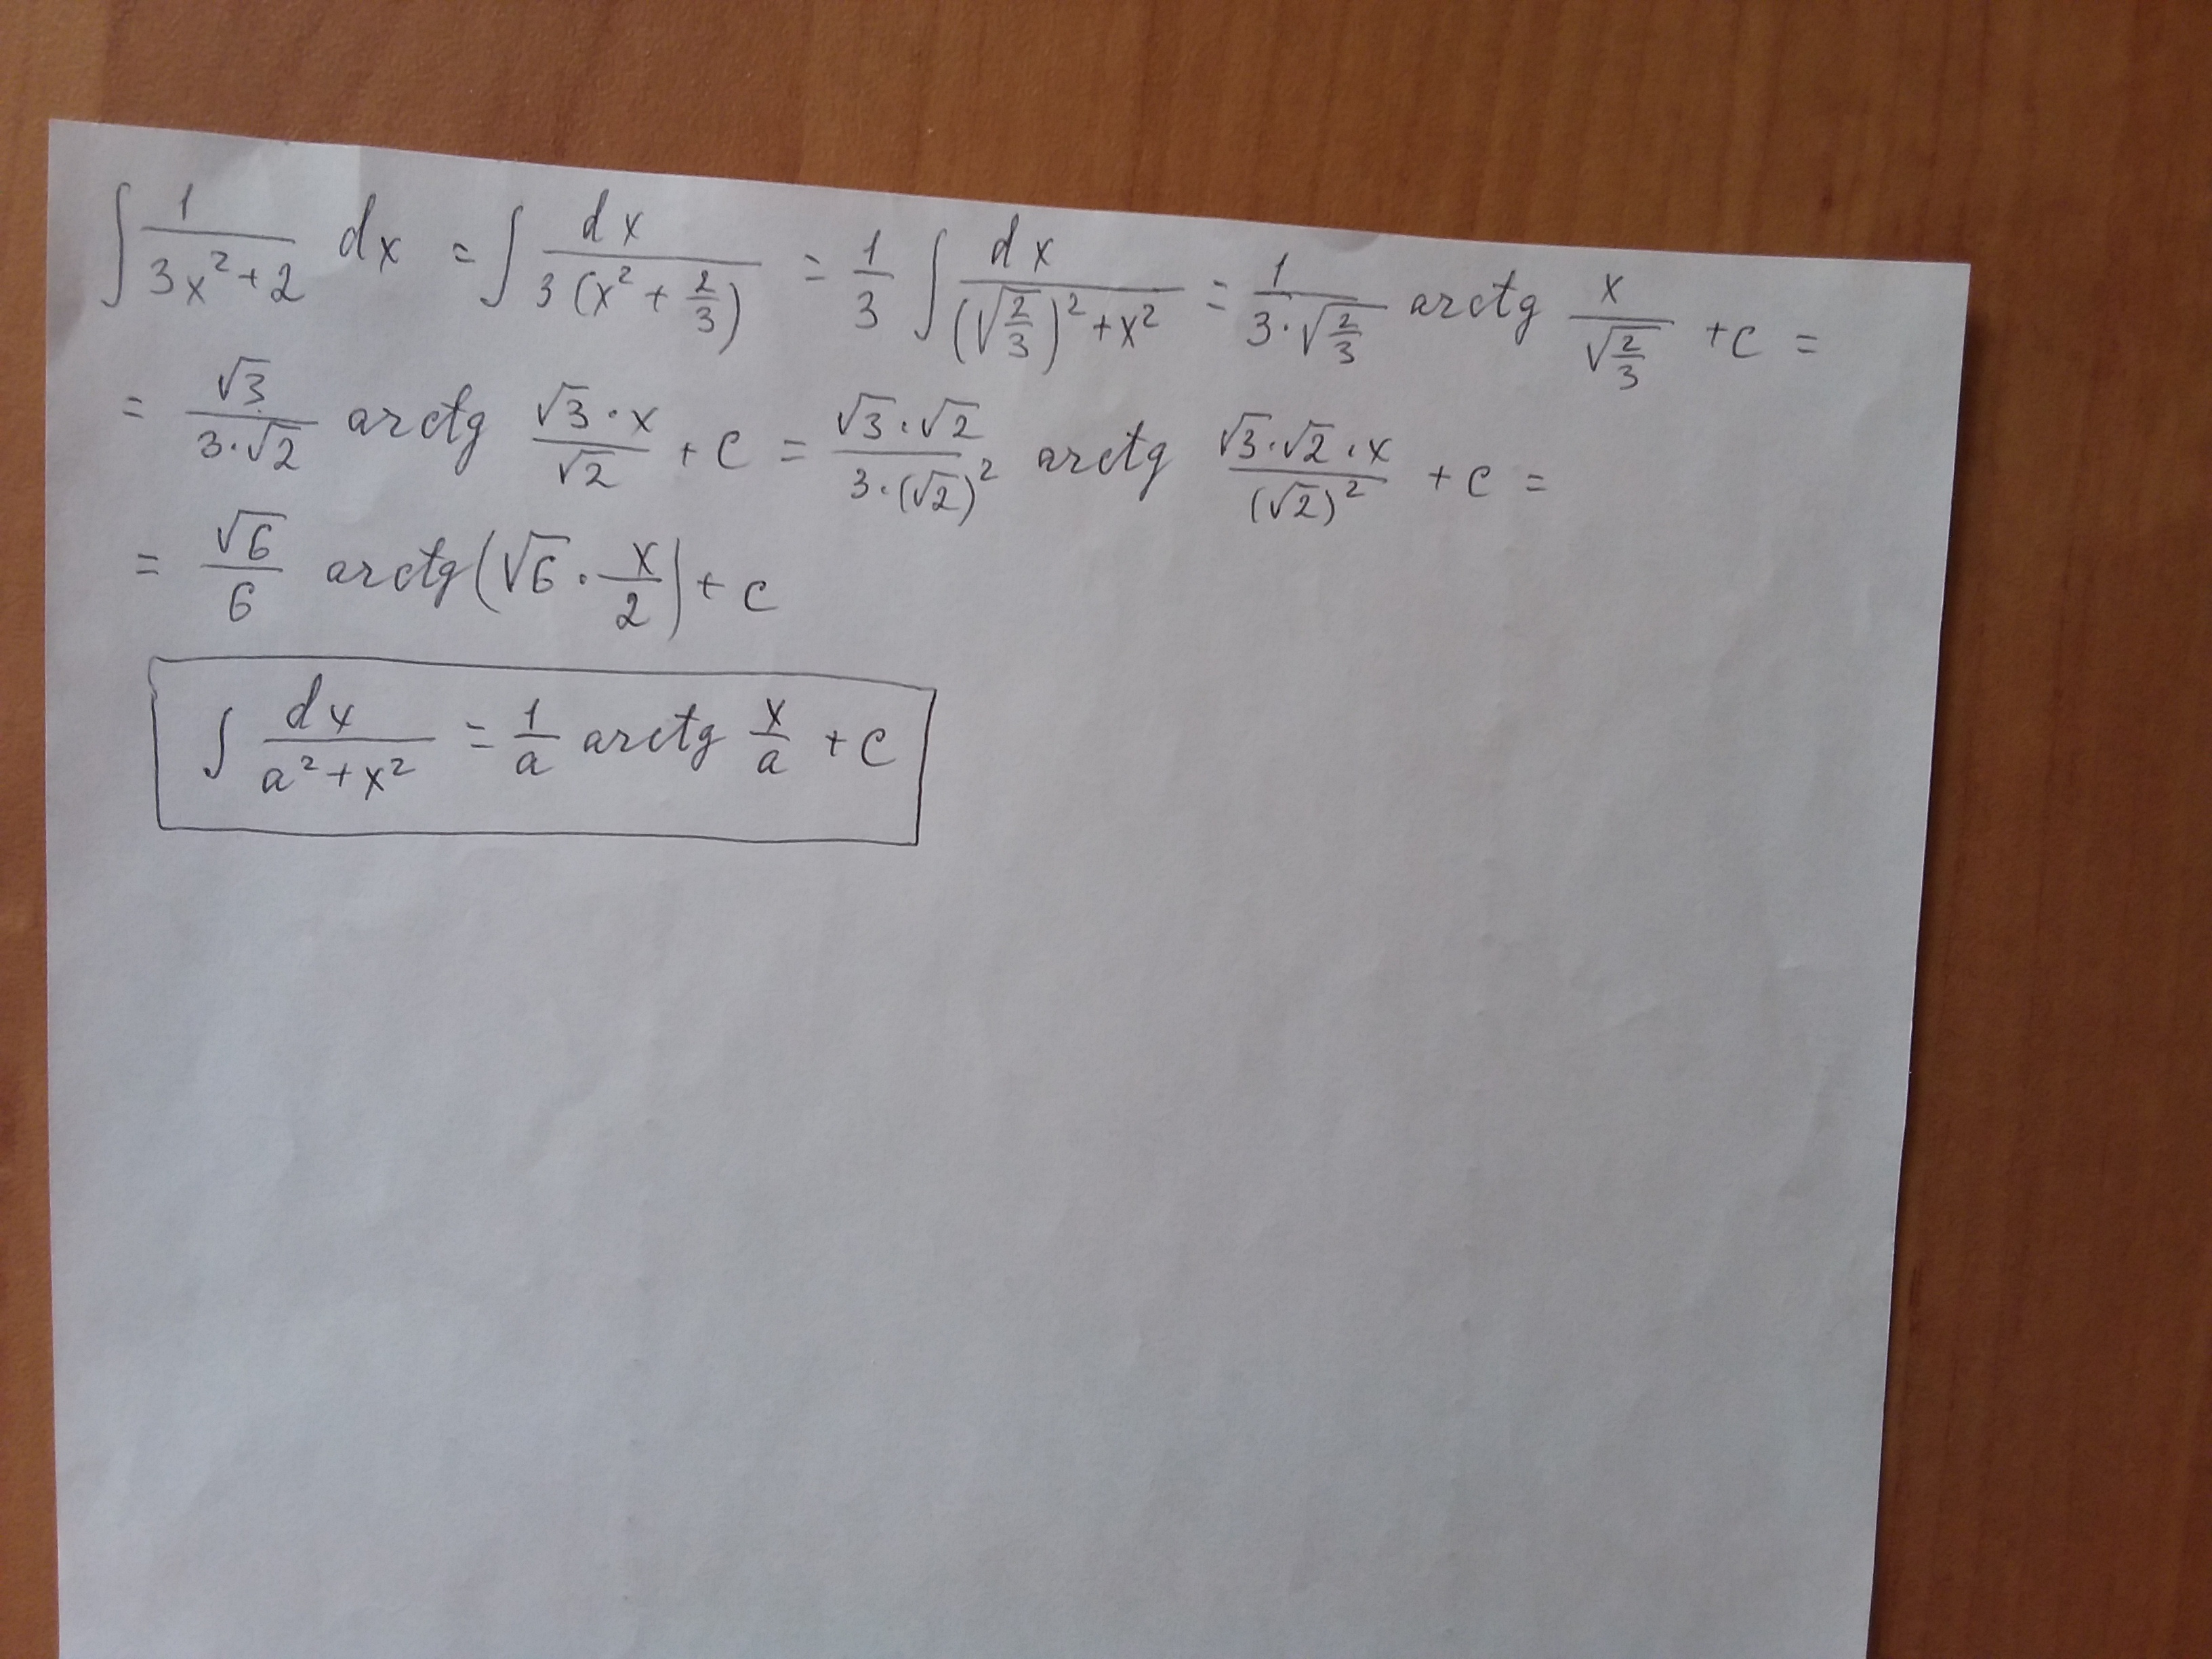 ∫ 1/(3x²+2) dx = ∫ dx/(3(x² + 2/3)) = 1/3 ∫ dx/((√(2/3))² + x²) = 1/(3·√(2/3)) arctg x/√(2/3) + c =
= √3/(3·√2) arctg (√3·x)/√2 + c = (√3·√2)/(3·(√2)²) arctg (√3·√2·x)/(√2)² + c =
= √6/6 arctg(√6 · x/2) + c
∫ dx/(a²+x²) = 1/a arctg x/a + c